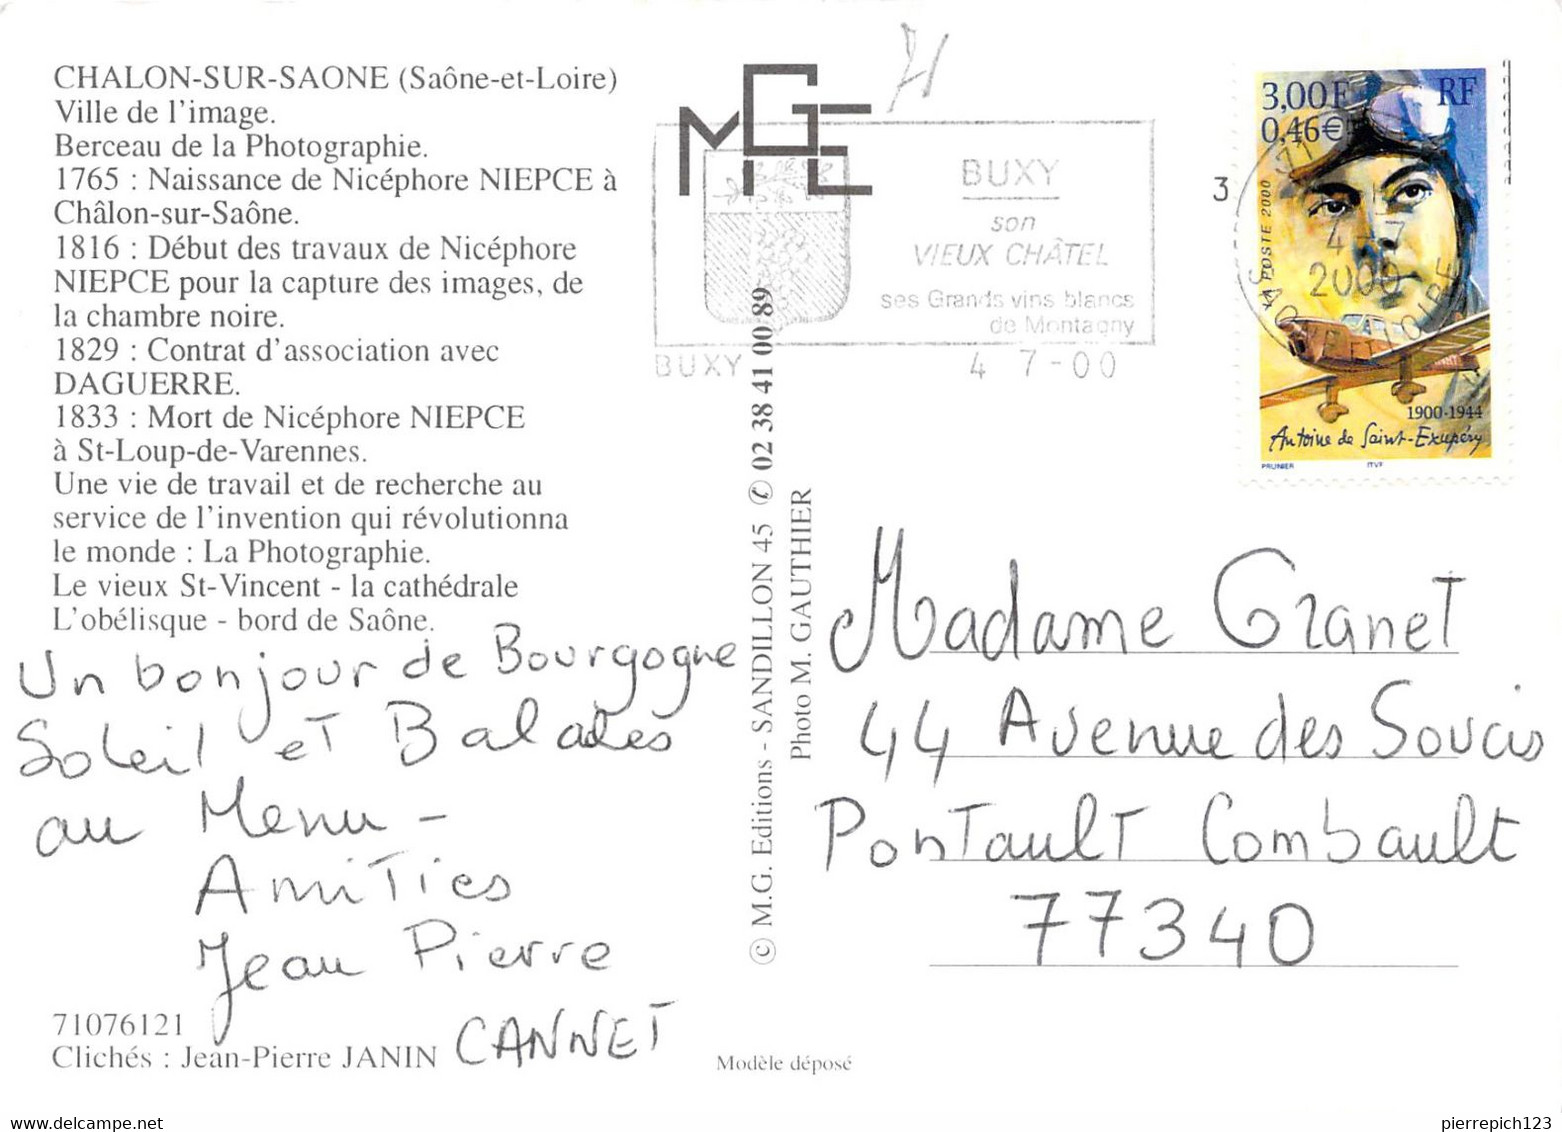 CHALON-SUR-SAONE (Saône-et-Loire)
Ville de l'image.
Berceau de la Photographie.
1765 : Naissance de Nicéphore NIEPCE à
Châlon-sur-Saône.
1816 : Début des travaux de Nicéphore
NIEPCE pour la capture des images, de
la chambre noire.
1829 : Contrat d'association avec
DAGUERRE.
1833 : Mort de Nicéphore NIEPCE
à St-Loup-de-Varennes.
Une vie de travail et de recherche au
service de l'invention qui révolutionna
le monde : La Photographie.
Le vieux St-Vincent - la cathédrale
L'obélisque - bord de Saône.
Un bonjour de Bourgogne
Soleil et Balades
au Menu -
Amitiés
Jean Pierre
CANNET
71076121
Clichés : Jean-Pierre JANIN
Modèle déposé
© M.G. Editions - SANDILLON 45 ✆ 02 38 41 00 89
Photo M. GAUTHIER
MGE
71
BUXY
son
VIEUX CHÂTEL
ses Grands vins blancs
de Montagny
BUXY 4 7-00
3
3,00F RF
0,46€
LA POSTE 2000
4-7
2000
SAONE ET LOIRE
1900-1944
Antoine de Saint-Exupéry
PRUNIER ITVF
Madame Granet
44 Avenue des Soucis
Pontault Combault
77340
pierrepich123